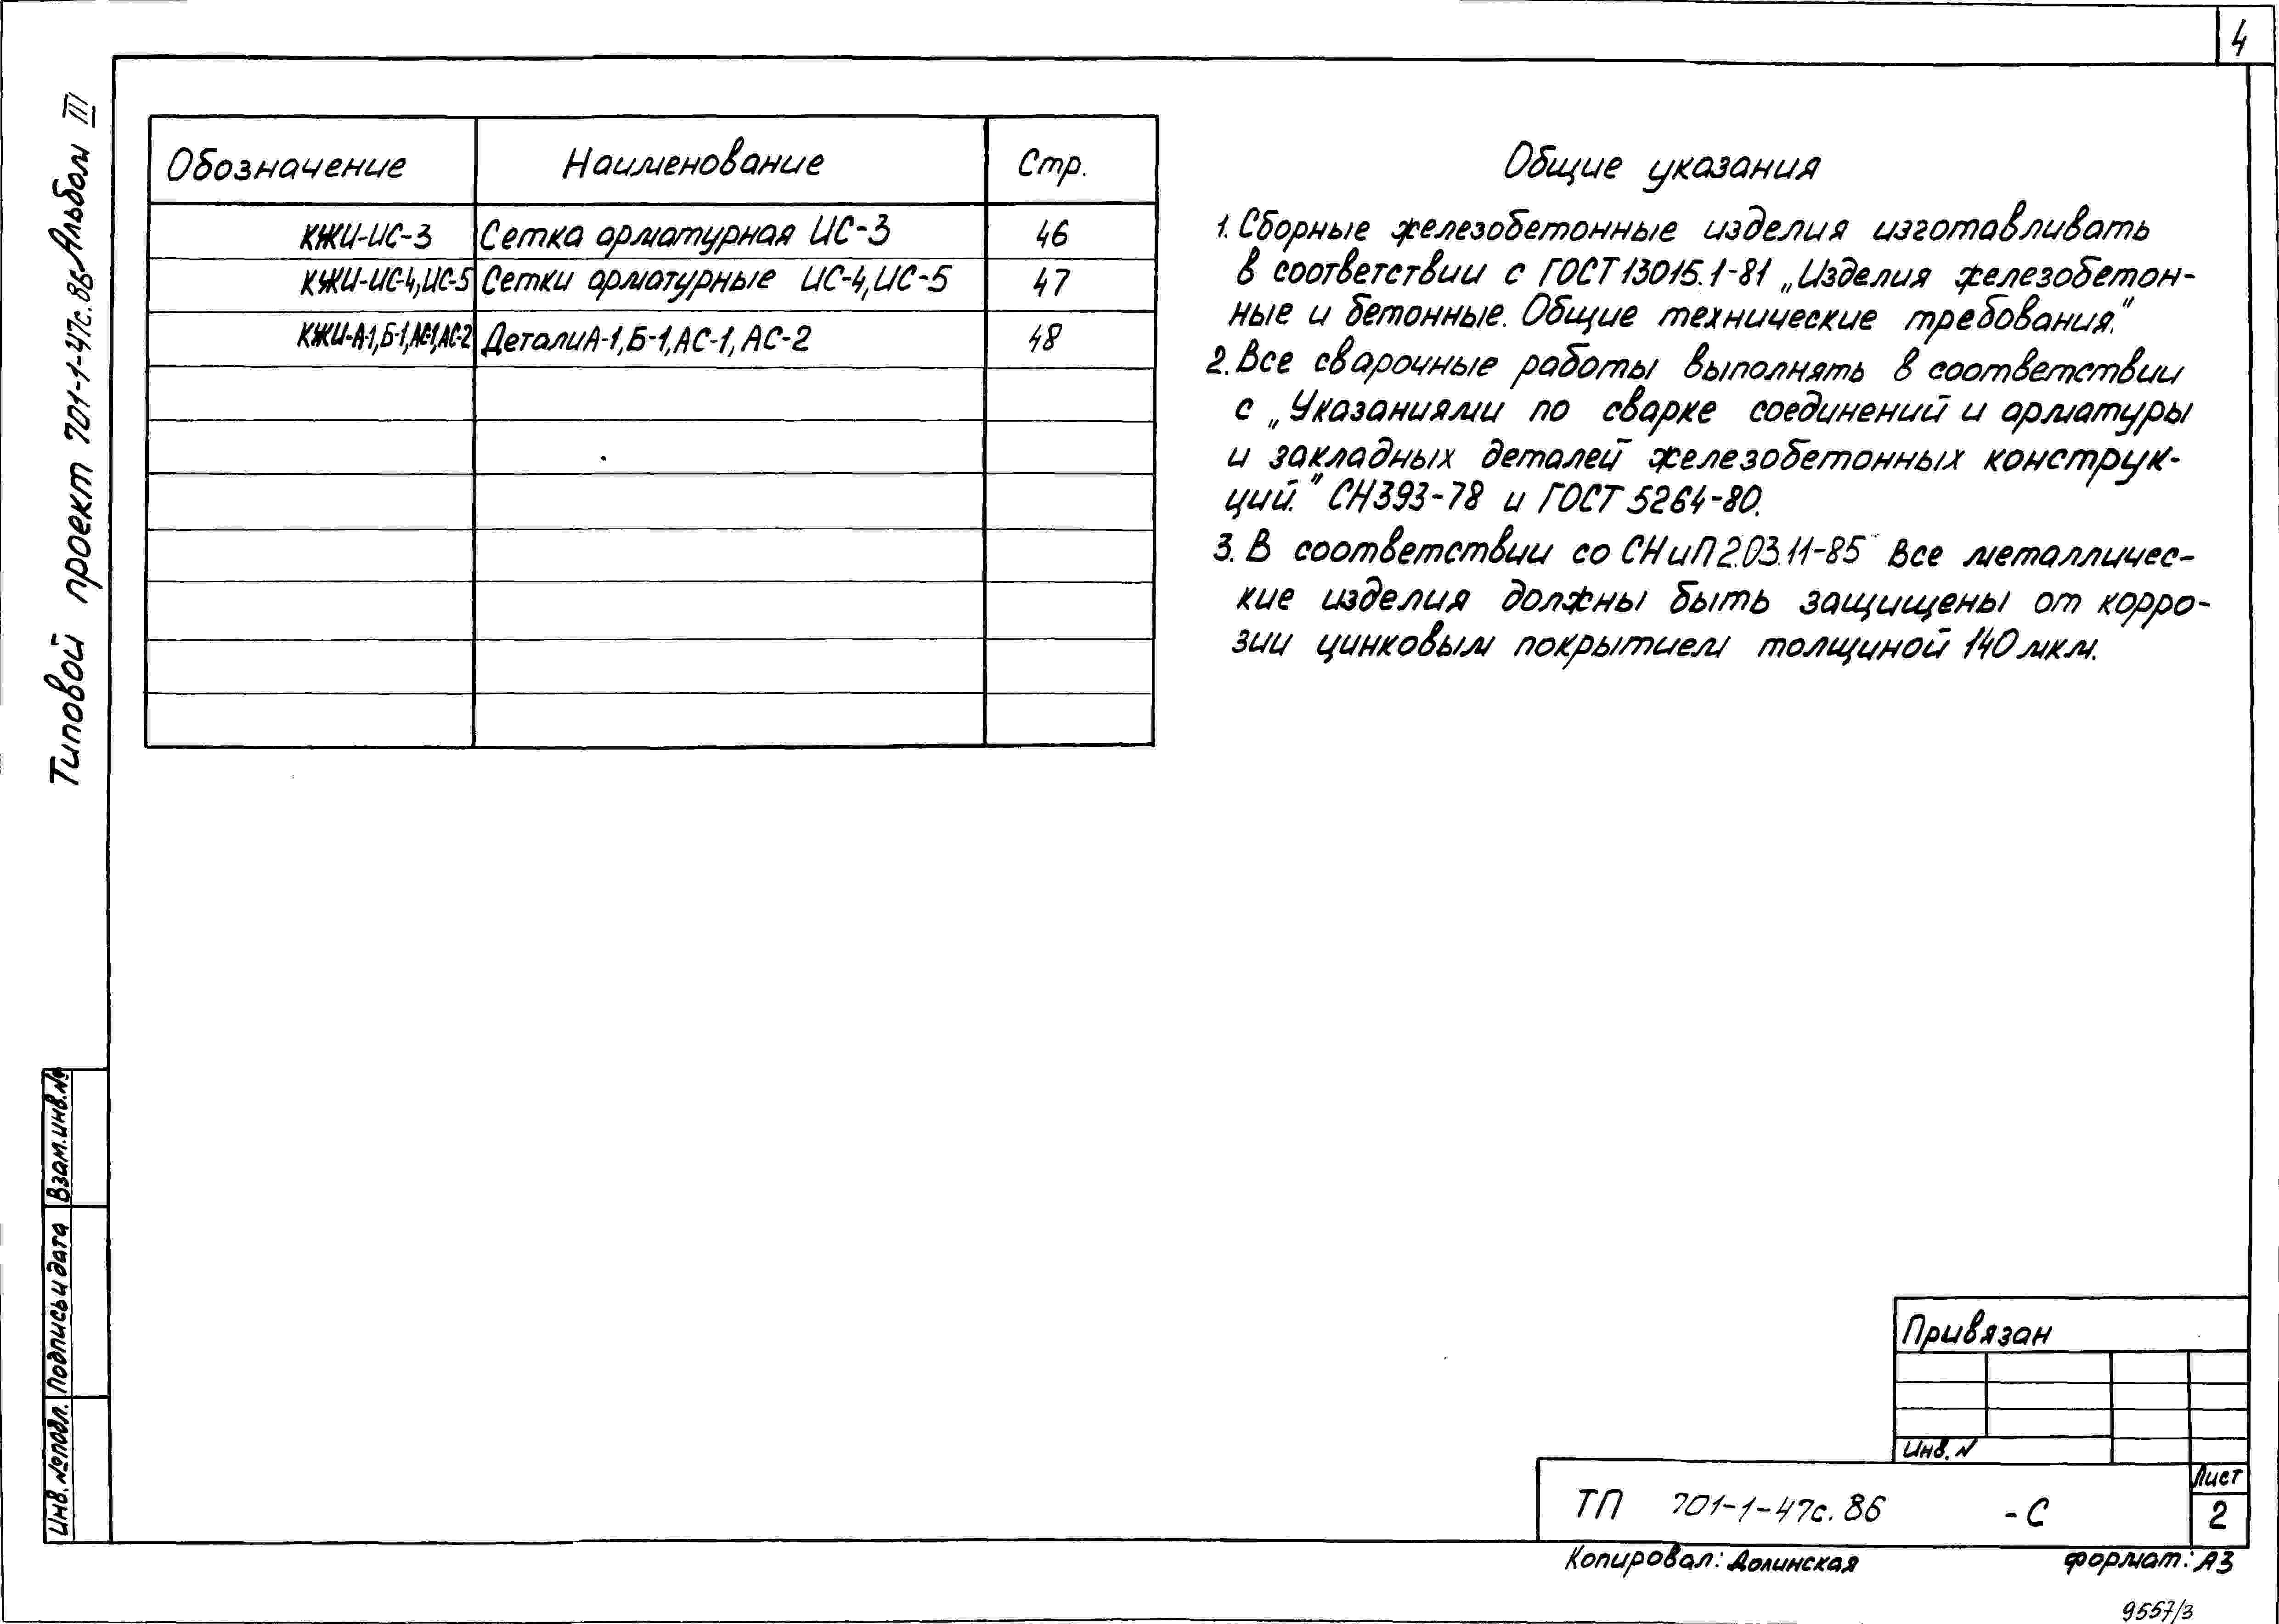 4
Типовой проект 701-1-47с.86 Альбом III
Обозначение Наименование Стр.
КЖИ-ИС-3 Сетка арматурная ИС-3 46
КЖИ-ИС-4,ИС-5 Сетки арматурные ИС-4,ИС-5 47
КЖИ-А-1,Б-1,АС-1,АС-2 Детали А-1,Б-1,АС-1,АС-2 48
Общие указания
1. Сборные железобетонные изделия изготавливать
в соответствии с ГОСТ 13015.1-81 „Изделия железобетон-
ные и бетонные. Общие технические требования."
2. Все сварочные работы выполнять в соответствии
с „Указаниями по сварке соединений и арматуры
и закладных деталей железобетонных конструк-
ций." СН393-78 и ГОСТ 5264-80.
3. В соответствии со СНиП 2.03.11-85 все металличес-
кие изделия должны быть защищены от корро-
зии цинковым покрытием толщиной 140 мкм.
Взам.инв.№
Подпись и дата
Инв.№подл.
Привязан
Инв.N
ТП 701-1-47с.86 -С
Лист
2
Копировал: Долинская формат: А3
9557/3